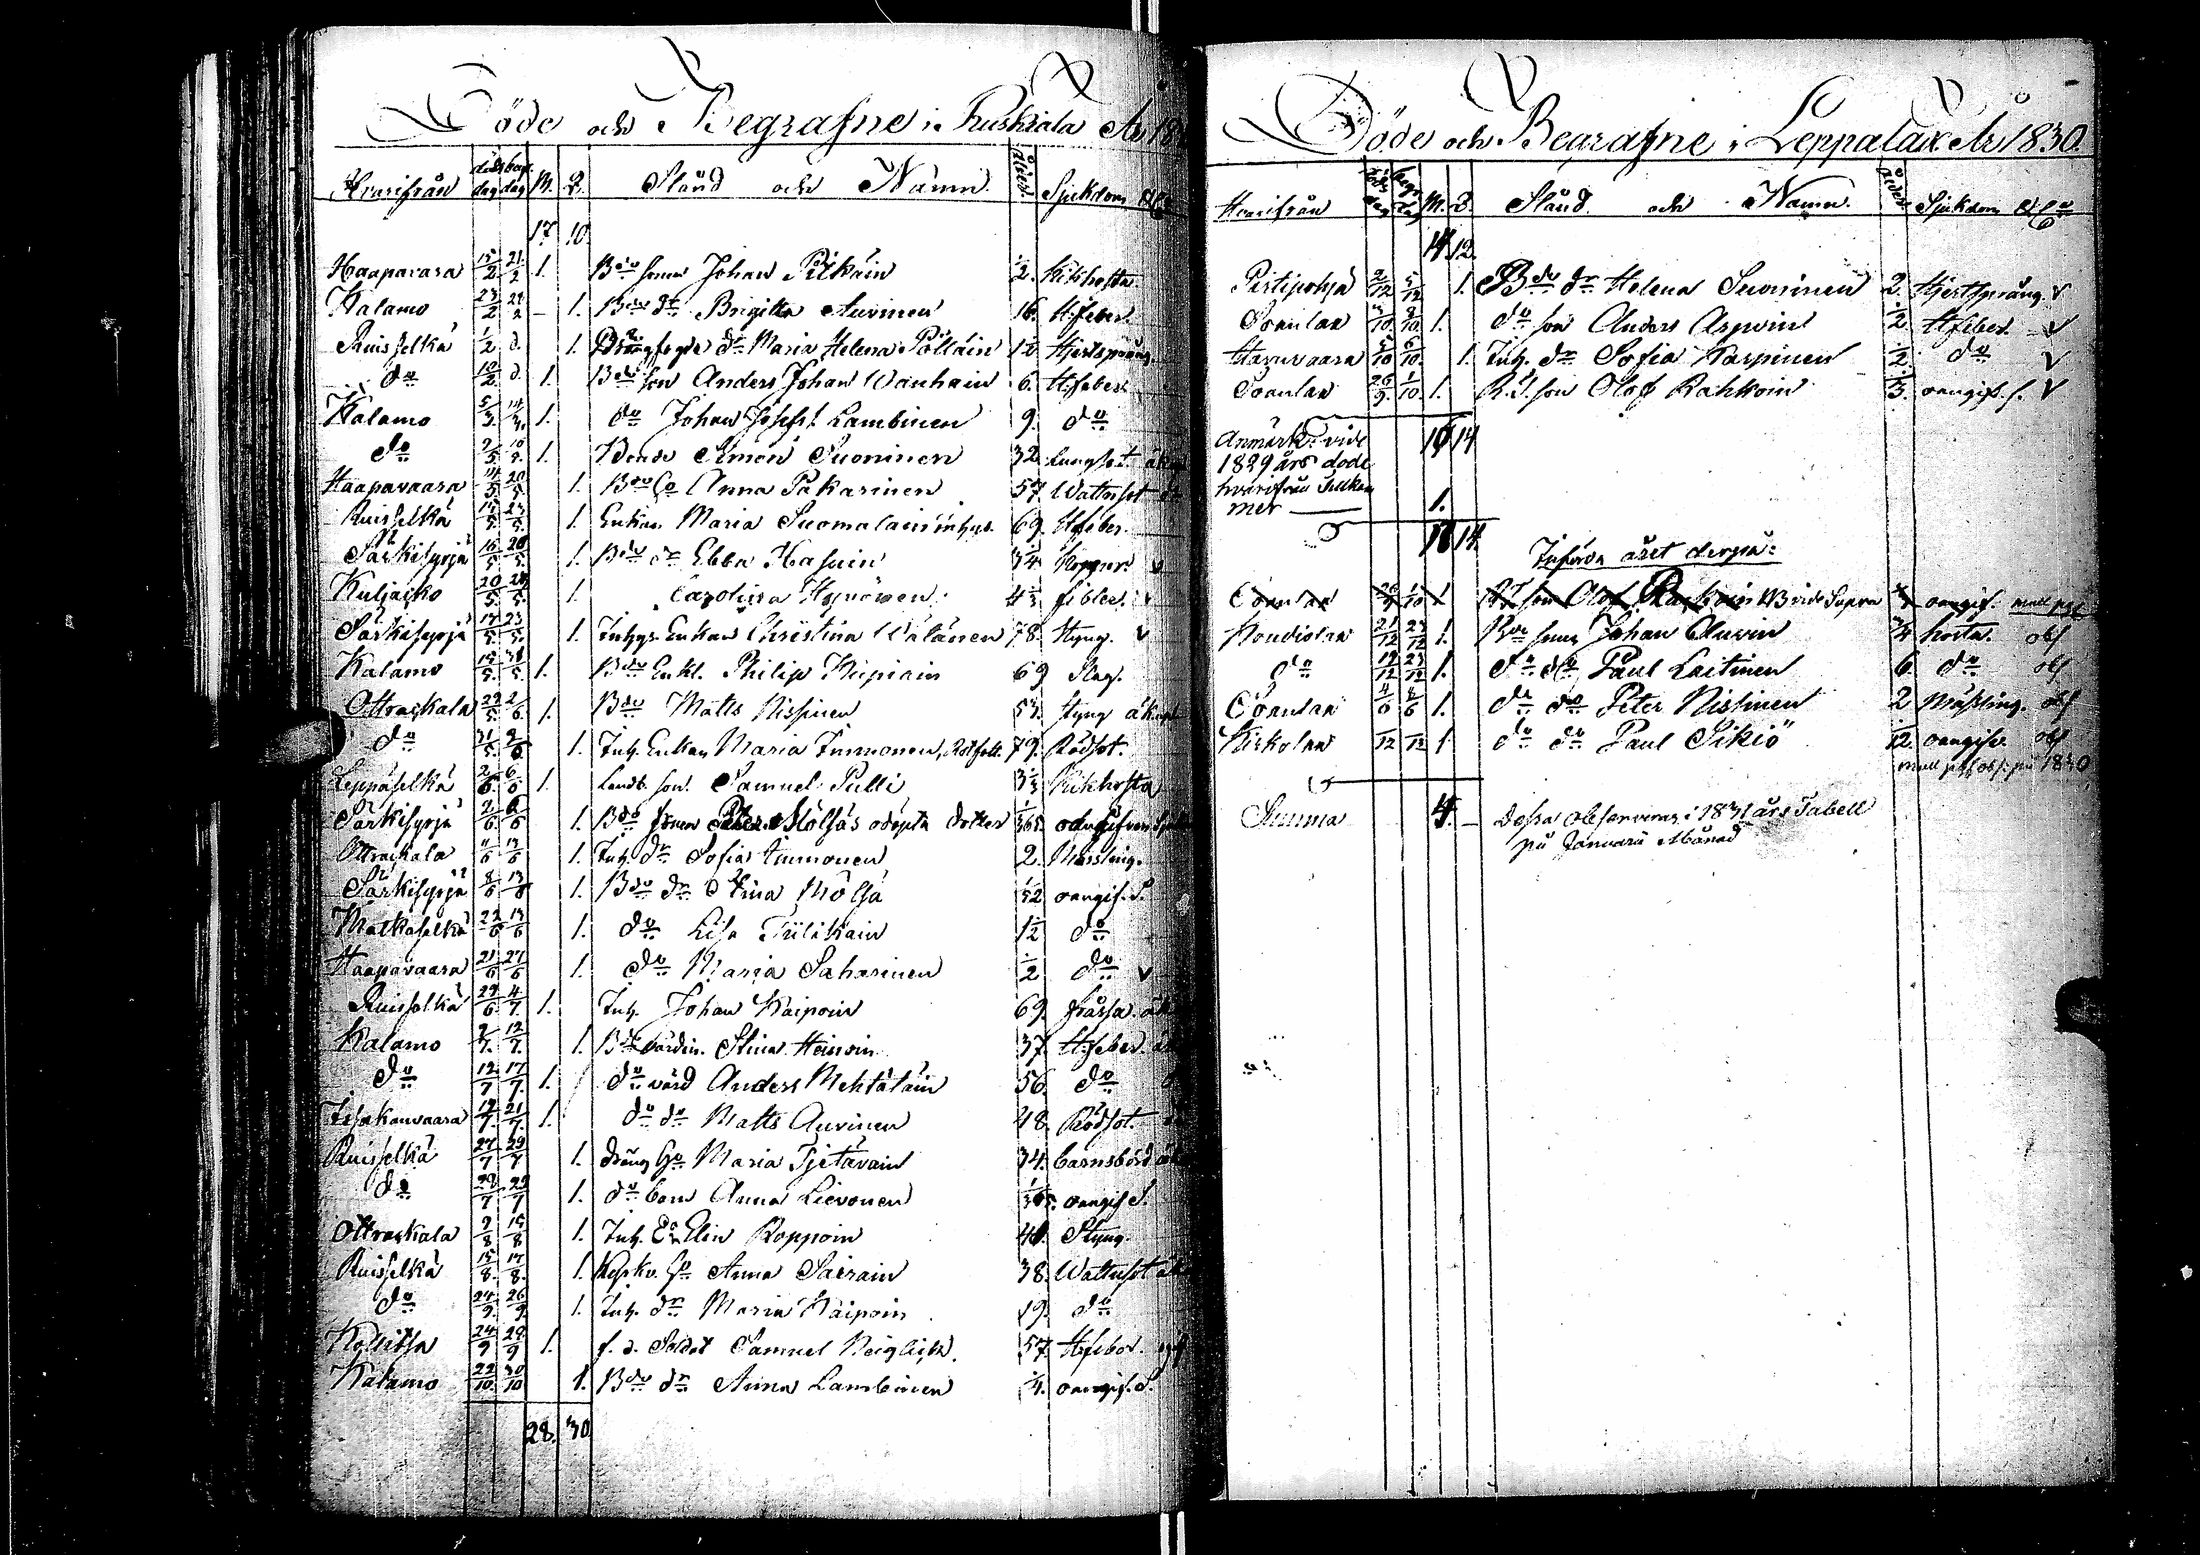 Döde och Begrafne i Ruskiala År 18
Hvarifrån döds dag begr. dag M. Q. Stånd och Namn. ålder Sjukdom
17. 10.
Haapavara 15/2 21/2 1. Bde sonen Johan Pitkäin 1/2. Kikhosta.
Kalamo 23/2 28/2 – 1. Bde dr Brigitta Auvinen 16. Hfeber.
Ruisselkä 1/2 d. 1. dr Maria Helena Pölläin 1 1/2 Hjertsprång.
do 10/2 d. 1. Bde son Anders Johan Wänhain 6. Hfeber.
Kalamo 5/3 14/3. 1. do Johan Josefs. Lambinen 9. do
do 2/5 10/5. 1. Bonde Simon Suoninen 32. Lungsot.
Haapavaara 14/5. 20/5. 1. Bde Ho Anna Pakarinen 57. Wattusot
Ruisselkä 15/5. 23/5. 1. Enkan Maria Suomalain inhys. 69. Hfeber.
Särkisyrjä 16/5. 20/5. 1. Bde dr Ebba Hasuin 3/4. Koppor. v
Kuljaiko 20/5. 24/5. 1. Carolina Hynönen. 4 1/3 feber. v
Särkisyrjä 17/5. 23/5. 1. Inhys. Enkan Christina Wälänen 78. Styng. v
Kalamo 15/5. 31/5. 1. Bde Enkl. Philip Kupiain 69 Slag.
Ottraskala 29/5 2/6 1. Bde Matts Nissinen 53. Styng
do 31/5. 2/6 1. Inh. Enkan Maria Immonen, 79. Rödsot.
Leppäselkä 2/6. 6/6 1. Landb. son. Samuel Pulli 3 1/3 Kikhosta
Särkisyrjä 2/6. 6/6 1. Bde sonen Peter Mölsäs odöpta dotter 1/365.
Ottraskala 4/6 13/6 1. Inh. dr Sofia Immonen 2. Mässling.
Särkisyrjä 8/6 13/6 1. Bde dr Stina Mölsä 1/52 oangif. S.
Matkaselkä 22/6 13/6 1. do Lisa Tiilikain 1 1/2 do
Haapavaara 21/6 27/6 1. do Maria Saharinen 1/2 do v
Ruisselkä 29/6. 4/7. 1. Inh. Johan Kaipoin 69. frässa.
Kalamo 7/7. 12/7. 1. Bde värdin. Stina Heinoin 37. Hfeber.
do 12/7 17/7. 1. do värd Anders Mehtäläin 56. do
19/7. 21/7. 1. do do Matts Auvinen 48. Rödsot.
Ruisselkä 27/7 29/7 1. dräng Ho Maria Tjetäväin 34. barnsbörd
do 28/7 29/7 1. do barn Anna Lievonen 1/365. oangif. S.
Ottraskala 9/8 15/8 1. Inh. Elin Roppoin 40. Styng.
Ruisselkä 15/8. 17/8. 1. Ho Anna Sairain 38. Wattusot
do 24/9. 26/9. 1. Inh. dr Maria Kaipoin 19. do
Kollitsa 24/9 29/9 1. f. d. Soldat Samuel Neiglick. 57. Hfeber.
Kalamo 22/10. 30/10 1. Bde dr Anna Lambinen 1/4. oangif. S.
28. 30.
Döde och Begrafne i Leppälax År 1830.
Hvarifrån döds dag begr. dag M. Q. Stånd och Namn. ålder Sjukdom
14. 12.
Pistipohja 2/12 5/12 1. Bde dr Helena Suoninen 2. Hjertsprång. v
3/10. 8/10. 1. do son Anders Asjwin 1/2. Hfeber. v
Haruvaara 5/10 6/10. 1. Inh. dr Sofia Karpinen 1/2. do v
26/9. 1/10. 1. R.T. son Olof Rahkoin 1/3. oangif. s. v
Anmärk: vide 14
1829 års döde
hvarifrån tillkom
mer 1.
14.
Införda året derpå:
26/9 1/10 1 R.T. son Olof Rahkoin vide Supra oangif.
Koudiolax 21/12 27/12 1. Bde sonen Johan Auvin 3/4 hosta. obs
do 19/12 23/12 1. do do Paul Laitinen 6. do obs
4/6 8/6 1. do do Peter Nissinen 2 Mässling. obs
Kirkolax /12 /12 1 do do Paul Sikiö 1/12. oangifv. obs
obs. på 1830
Summa 4. – dessa observeras i 1831 års Tabell
på Januarii Månad